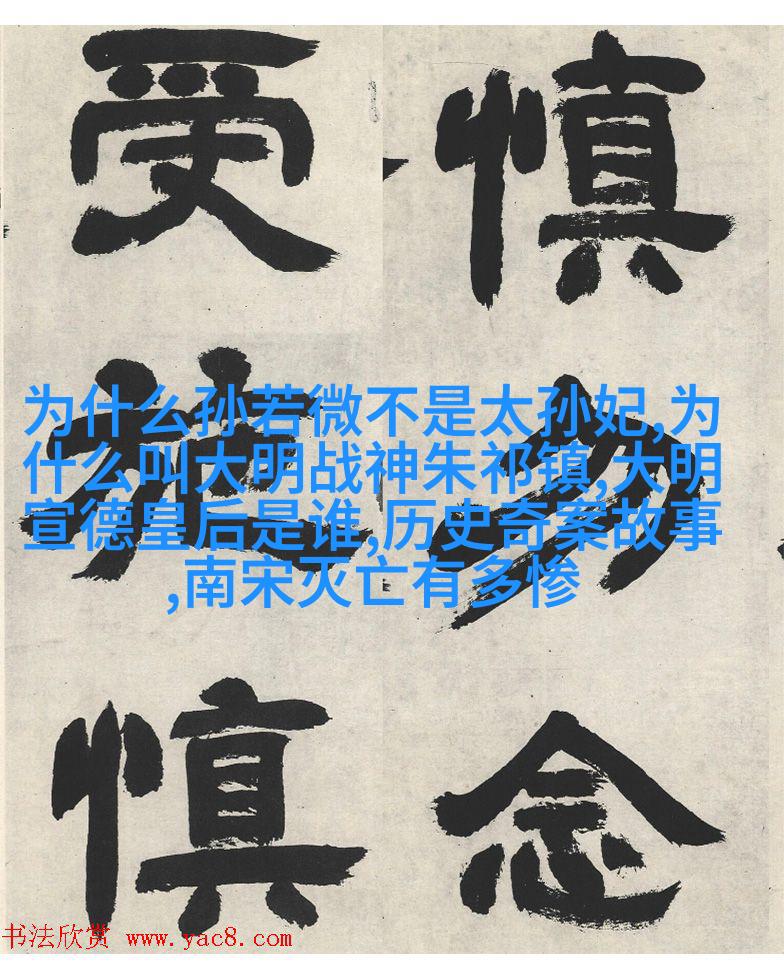 慎勿念
受施慎
为什么孙若微不是太孙妃,为
什么叫大明战神朱祁镇,大明
宣德皇后是谁,历史奇案故事
,南宋灭亡有多惨
书法欣赏 www.yac8.com